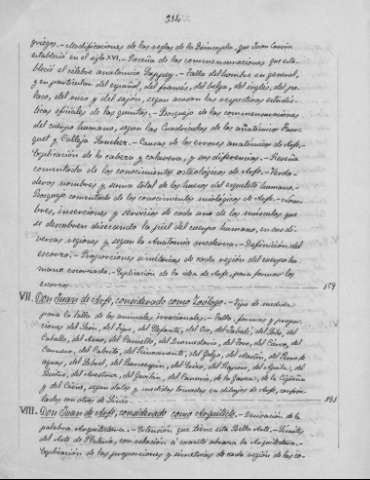 314
griegos.- Modificaciones de las reglas de la Disimetría, que Juan Cousin
estableció en el siglo XVI.- Reseña de las conmensuraciones que esta-
bleció el célebre anatómico Sappey.- Talla del hombre en general,
y en particular del español, del francés, del belga, del inglés, del po-
laco, del ruso y del sajón, segun acusan las respectivas estadís-
ticas oficiales de las quintas.- Bosquejo de las conmensuraciones
del cuerpo humano, segun las Cuadrículas de los anatómicos
y Calleja Sanchez.- Causas de los errores anatómicos de Arfe.-
Explicación de la cabeza y calavera, y sus diferencias.- Reseña
comentada de los conocimientos osteológicos de Arfe.- Verda-
deros nombres y suma total de los huesos del esqueleto humano.-
Bosquejo comentado de los conocimientos miológicos de Arfe.- Nom-
bres, inserciones y servicios de cada uno de los músculos que
se descubren disecando la piel del cuerpo humano, en sus di-
versas regiones y segun la Anatomía moderna.- Definición del
escorzo.- Proporciones y simetrías de cada región del cuerpo hu-
mano escorzado.- Explicación de la idea de Arfe, para formar los
escorzos 159
VII. Don Juan de Arfe, considerado como Zoólogo.- Tipo de medida
para la talla de los animales irracionales.- Talla, formas y propor-
ciones del León, del Tigre, del Elefante, del Oso, del Jabalí, del Lobo, del
Caballo, del Asno, del Camello, del Dromedario, del Toro, del Ciervo, del
Carnero, del Cabrito, del Rinoceronte, del Galgo, del Mastín, del Perro de
aguas, del Lebrel, del , del , del Raposo, del Aguila, del
 del Avestruz, del Gavilán, del , de la Garza, de la Cigüeña
y del Cisne, segun datos y medidas tomadas en dibujos de Arfe, compro-
badas con otras de 191
VIII. Don Juan de Arfe, considerado como Arquitecto.- Derivación de la
palabra Arquitectura.- Extensión que tiene esta Bella Arte.- Límites
del Arte de Platería, con relación á cuanto abraza la Arquitectura.-
Explicación de las proporciones y simetrías de cada región de las co-